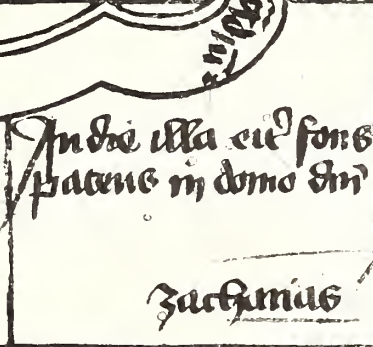 In die illa erit fons
patens in domo dm̄
zacharias